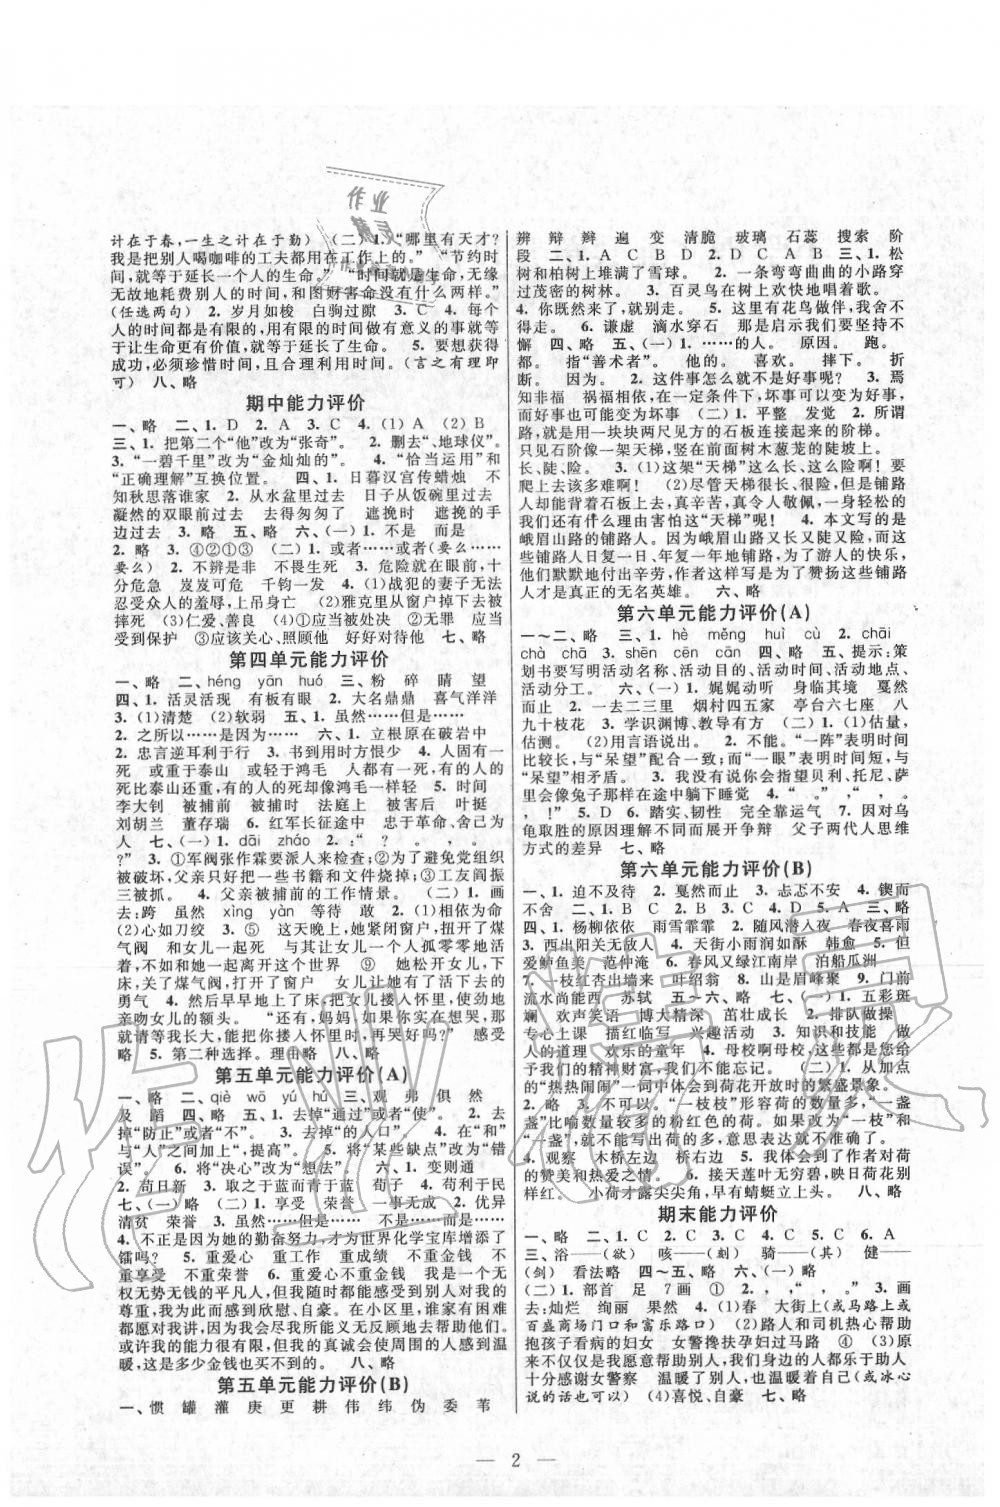 作业
精灵
计在于春，一生之计在于勤）　（二）1.“哪里有天才？
我是把别人喝咖啡的工夫都用在工作上的。”　“节约时
间，就等于延长一个人的生命。”　“时间就是生命，无缘
无故地耗费别人的时间，和图财害命没有什么两样。”
（任选两句）　2. 岁月如梭　白驹过隙　3. C　4. 每个
人的时间都是有限的，用有限的时间做有意义的事就等
于让生命更有价值，就等于延长了生命。　5. 要想获得
成功，必须珍惜时间，且合理利用时间。（言之有理即
可）　八、略
期中能力评价
一、略　二、1. D　2. A　3. C　4. (1) A　(2) B
三、1. 把第二个“他”改为“张奇”。　2. 删去“、地球仪”。
3. “一碧千里”改为“金灿灿的”。　4. “恰当运用”和
“正确理解”互换位置。　四、1. 日暮汉宫传蜡烛　不
知秋思落谁家　2. 从水盆里过去　日子从饭碗里过去
凝然的双眼前过去　去得匆匆了　遮挽时　遮挽的手
边过去　3. 略　五、略　六、(一) 1. 不是　而是
2. 略　3. ④②①③　(二) 1. 或者……或者（要么……
要么）　2. 不辨是非　3. 危险就在眼前，十
分危急　岌岌可危　千钧一发　4. (1)战犯的妻子无法
忍受众人的羞辱，上吊身亡　(2)雅克里从窗户掉下去
摔死　(3)仁爱、善良　5. ①应当被处决　②无罪　应当
受到保护　③应该关心、照顾他　好好对待他　七、略
第四单元能力评价
一、略　二、héng　yān　huó　三、粉　碎　睛　望
四、1. 活灵活现　有板有眼　2. 大名鼎鼎　喜气洋洋
3. (1)清楚　(2)软弱　五、1. 虽然……但是……
2. 之所以……是因为……　六、1. 立根原在破岩中
2. 忠言逆耳利于行　3. 书到用时方恨少　4. 人固有一
死　或重于泰山　或轻于鸿毛　人都是要死的，有的人的
死比泰山还重，有的人的死却像鸿毛一样轻　5. 时间
李大钊　被捕前　被捕时　法庭上　被害后　叶挺
刘胡兰　董存瑞　6. 红军长征途中　忠于革命、舍己为
人　七、(一) 1. dāi　zháo　2. “？　，　。　，
？”　3. ①军阀张作霖要派人来检查；②为了避免党组织
被破坏，父亲只好把一些书籍和文件烧掉；③工友阎振
三被抓。　4. 父亲被捕前的工作情景。　(二) 1. 画
去：跨　虽然　xìng　yàn　等待　敢　2. (1)相依为命
(2)心如刀绞　3. ⑤　这天晚上，她紧闭窗户，扭开了煤
气阀　和女儿一起死　与其让女儿一个人孤零零地活
着，不如一起离开这个世界　⑨　她松开女儿，下
床，关了煤气阀，打开了窗户　女儿让她有了活下去的
勇气　4. 然后早早地上了床，把女儿搂入怀里，使劲地
亲吻女儿的额头。　“还有，妈妈，如果你实在想哭，那
就请等我长大，能把你搂入怀里时，再哭好吗？”　感受
略　5. 第二种选择。理由略　八、略
第五单元能力评价(A)
一、略　二、qiè　wō　yú　hú　三、观　弗　俱　然
及　陌　四、略　五、1. 去掉“通过”或者“使”。　2. 去
掉“防止”或者“不”。　3. 去掉“的人口”。　4. 在“和”
与“人”之间加上“，提高”。　5. 将“某些缺点”改为“错
误”。　6. 将“决心”改为“想法”。　六、1. 变则通
2. 苟日新　3. 取之于蓝而青于蓝　荀子　4. 苟利于民
七、(一) 略　(二) 1. 享受　荣誉　一事无成　2. 优异
清贫　荣誉　3. 虽然……但是……　不是……而是……
4. 不正是因为她的勤奋努力，才为世界化学宝库增添了
镭吗？　5. 重爱心　重荣誉　重成绩　不重金钱　不
重享受　不重荣誉　6. 重爱心　不重金钱　我是一个无
权无势无钱的平凡人，但我随时都能感受到别人对我的
尊重，我为此而感到欣慰、自豪。在小区里，谁家有困难
都愿意对我讲，因为只要我能帮得上忙，都义无反顾。
或许我的能力很有限，但我的真诚会使周围的人感到温
暖，这是多少金钱也买不到的。　八、略
第五单元能力评价(B)
一、惯　罐　灌　庚　更　耕　伟　纬　伪　委　苇
辨　辩　辫　遍　变　清脆　玻璃　石蕊　搜索　阶
段　二、1. D　2. D　3. C　4. A　5. B　三、1. 松
树和柏树上堆满了雪球。　2. 一条弯弯曲曲的小路穿
过茂密的树林。　3. 百灵鸟在树上欢快地唱着歌。
4. 你既然来了，就别走。　5. 这里有花鸟做伴，我舍不
得走。　6. 谦虚　滴水穿石　那是启示我们要坚持不
懈　四、略　五、(一) 1. ……的人。　原因。　跑。
都。　指“善术者”。　他的。　喜欢。　摔下。　折
断。　因为。　2. 这件事怎么就不是好事呢？　3. 焉
知非福　祸福相依，在一定条件下，坏事可能变为好事，
而好事也可能变为坏事　(二) 1. 平整　发觉　2. 所谓
路，都是用一块块两尺见方的石板连接起来的阶梯。
只见石阶像一条天梯，竖在前面树木葱茏的陡坡上。
长、陡、险。　3. (1)这架“天梯”这么长、这么险啊！要
爬上去该多难啊！　(2)尽管天梯很长、很险，但是铺路
人却能背着石板上去，真辛苦，真令人敬佩，一身轻松的
我们还有什么理由害怕这“天梯”呢！　4. 本文写的是
峨眉山路的铺路人。因为峨眉山路又长又陡又险，而这
些铺路人日复一日、年复一年地铺路，为了游人的快乐，
他们默默地付出辛劳，作者这样写是为了赞扬这些铺路
人才是真正的无名英雄。　六、略
第六单元能力评价(A)
一～二、略　三、1. hè　měng　huì　cù　2. chāi
chà　chā　3. shēn　cēn　cān　四、略　五、提示：策
划书要写明活动名称、活动目的、活动时间、活动地点、
活动分工。　六、(一) 1. 娓娓动听　身临其境　戛然
而止　2. 一去二三里　烟村四五家　亭台六七座　八
九十枝花　3. 学识渊博、教导有方　(二) 1. (1)估量，
估测。　(2)用言语说出。　2. 不能。“一阵”表明时间
比较长，与“呆望”配合一致；而“一眼”表明时间短，
与“呆望”相矛盾。　3. 我没有想到会指望贝利、托尼、萨
里会像兔子那样在途中躺下睡觉　4. “　。”　，“　，　。
，　！”　5. D　6. 踏实、韧性　完全靠运气　7. 因对乌
龟取胜的原因理解不同而展开争辩　父子两代人思维
方式的差异　七、略
第六单元能力评价(B)
一、1. 迫不及待　2. 戛然而止　3. 忐忑不安　4. 锲而
不舍　二、1. B　2. C　3. C　4. D　5. A　三、略
四、1. 杨柳依依　雨雪霏霏　2. 随风潜入夜　春夜喜雨
3. 西出阳关无故人　4. 天街小雨润如酥　韩愈　5. 但
爱鲈鱼美　范仲淹　6. 春风又绿江南岸　泊船瓜洲
7. 一枝红杏出墙来　叶绍翁　8. 山是眉峰聚　9. 门前
流水尚能西　苏轼　五～六、略　七、(一) 1. 五彩斑
斓　欢声笑语　博大精深　茁壮成长　2. 排队做操
专心上课　描红临写　兴趣活动　3. 知识和技能　做
人的道理　欢乐的童年　4. 母校啊母校，这些都是您给
予我们的精神财富，我们将终生受益！　(二) 1. 作者用
的“热热闹闹”一词中体会到荷花开放时的繁盛景象。
2. 略　3. 不可以。“一枝枝”形容荷的数量多，“一盏
盏”比喻数量较多的粉红色的荷。如果改为“一枝”和
“一盏”，就不能写出荷的多，意境就变了。
4. 观察　木桥左边　桥右边　5. 我体会到了作者对荷
的赞美和热爱之情。　6. 接天莲叶无穷碧，映日荷花别
样红。　小荷才露尖尖角，早有蜻蜓立上头。　八、略
期末能力评价
一、略　二、1. C　2. C　3. C　4. C　5. C　6. A
三、浴——（欲）　咳——（刻）　骑——（其）　健——
（剑）　看法略　四～五、略　六、(一) 略
(二) 1. 部首　足　7画　①　2. ，　，　“，　。”　3. 画
去：灿烂　绚丽　果然　4. (1)春　大街上（或马路上或
百盛商场门口和富乐路口）　(2)路人和司机热心帮助
抱孩子看病的妇女　女警搀扶孕妇过马路　④　(3)原
来不仅仅是我愿意帮助别人，身边的人都乐于助人
十分感谢女警察　温暖了别人，也温暖着自己（或冰心
说的话也可以）　(4)喜悦、自豪　七、略
— 2 —
作业精灵